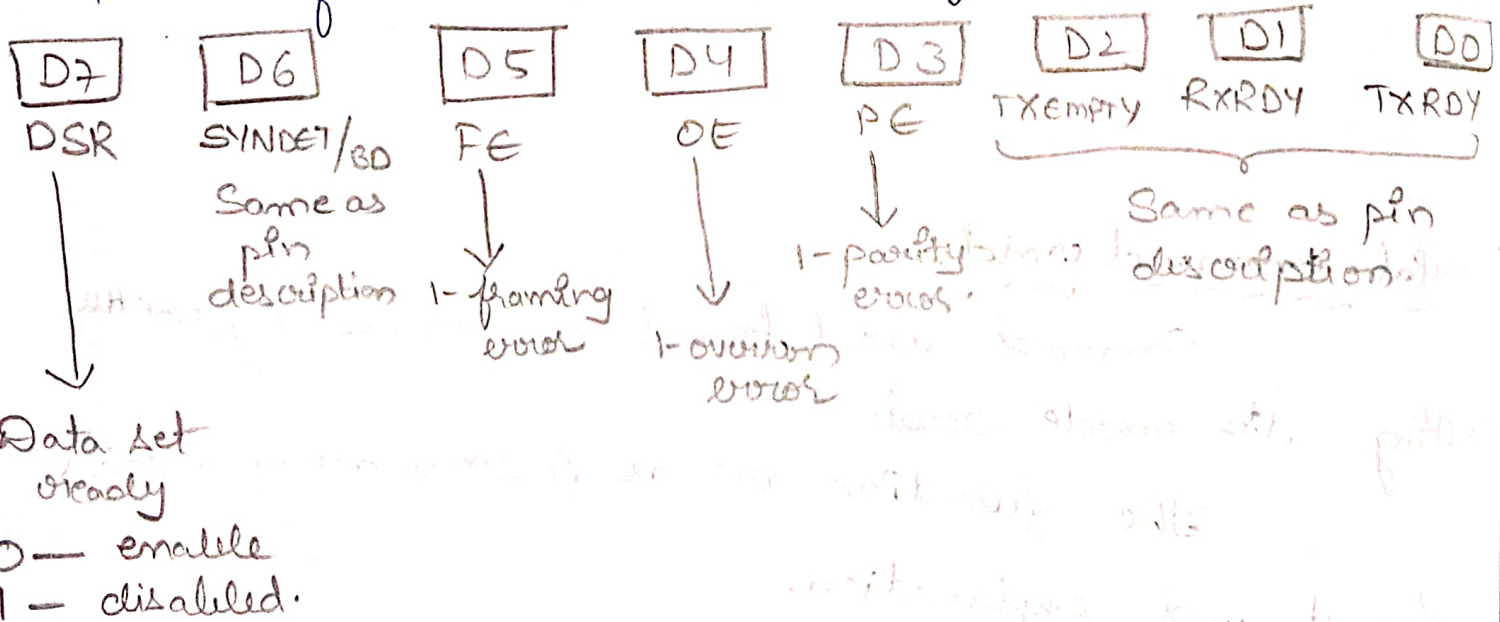 D7 D6 D5 D4 D3 D2 D1 D0
DSR SYNDET/BD FE OE PE TXEMPTY RXRDY TXRDY
Same as
pin
description
1- framing
error
1- overrun
error
1- parity
error.
Same as pin
description.
Data set
ready
0 — enable
1 — disabled.